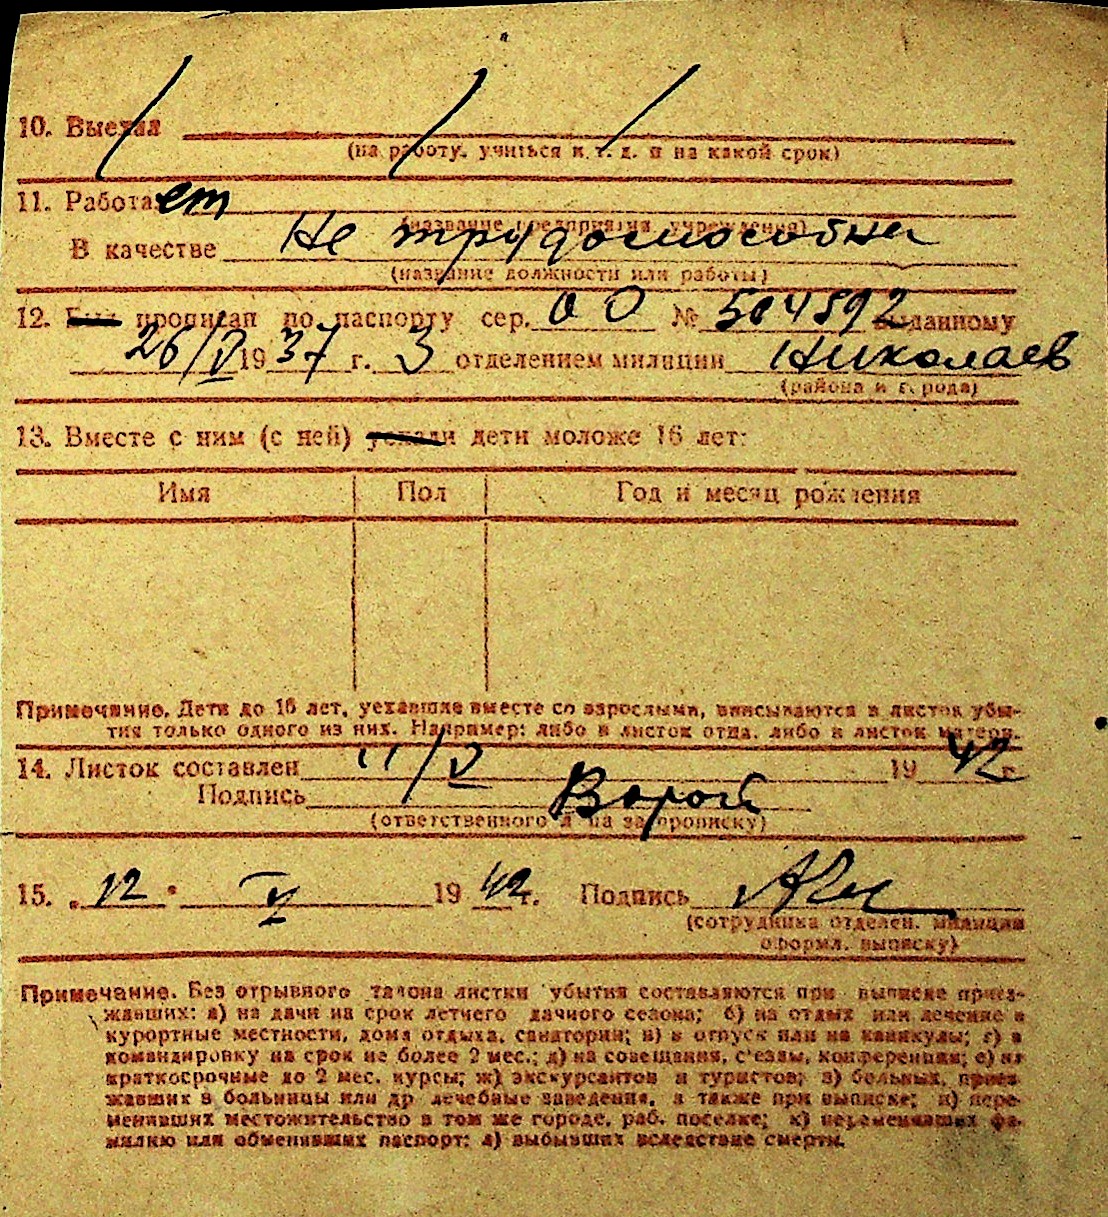 10. Выехал
(на работу, учиться и т. д. и на какой срок)
11. Работает
(название предприятия, учреждения)
В качестве Не трудоспособна
(название должности или работы)
12. Был прописан по паспорту сер. 00 № 504892 выданному
26/V 1937 г. 3 отделением милиции Николаев
(района и города)
13. Вместе с ним (с ней) уехали дети моложе 16 лет:
Имя Пол Год и месяц рождения
Примечание. Дети до 16 лет, уехавшие вместе со взрослыми, вписываются в листок убы-
тия только одного из них. Например: либо в листок отца, либо в листок матери.
14. Листок составлен 11/V 1942 г.
Подпись
(ответственного л на за прописку)
15. „12" V 1942 г. Подпись
(сотрудника отделен. милиции
оформл. выписку)
Примечание. Без отрывного талона листки убытия составляются при выписке приез-
жавших: а) на дачи на срок летнего дачного сезона; б) на отдых или лечение в
курортные местности, дома отдыха, санатории; в) в отпуск или на каникулы; г) в
командировку на срок не более 2 мес.; д) на совещания, с'езды, конференции; е) на
краткосрочные до 2 мес. курсы; ж) экскурсантов и туристов; з) больных, приез-
жавших в больницы или др лечебные заведения, а также при выписке; и) пере-
менивших местожительство в том же городе, раб. поселке; к) переменивших фа-
милию или обменивших паспорт; л) выбывших вследствие смерти.